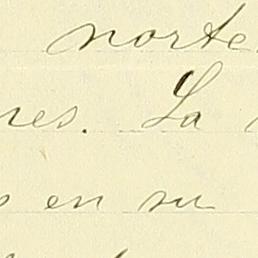 norte
nes. La
s en su